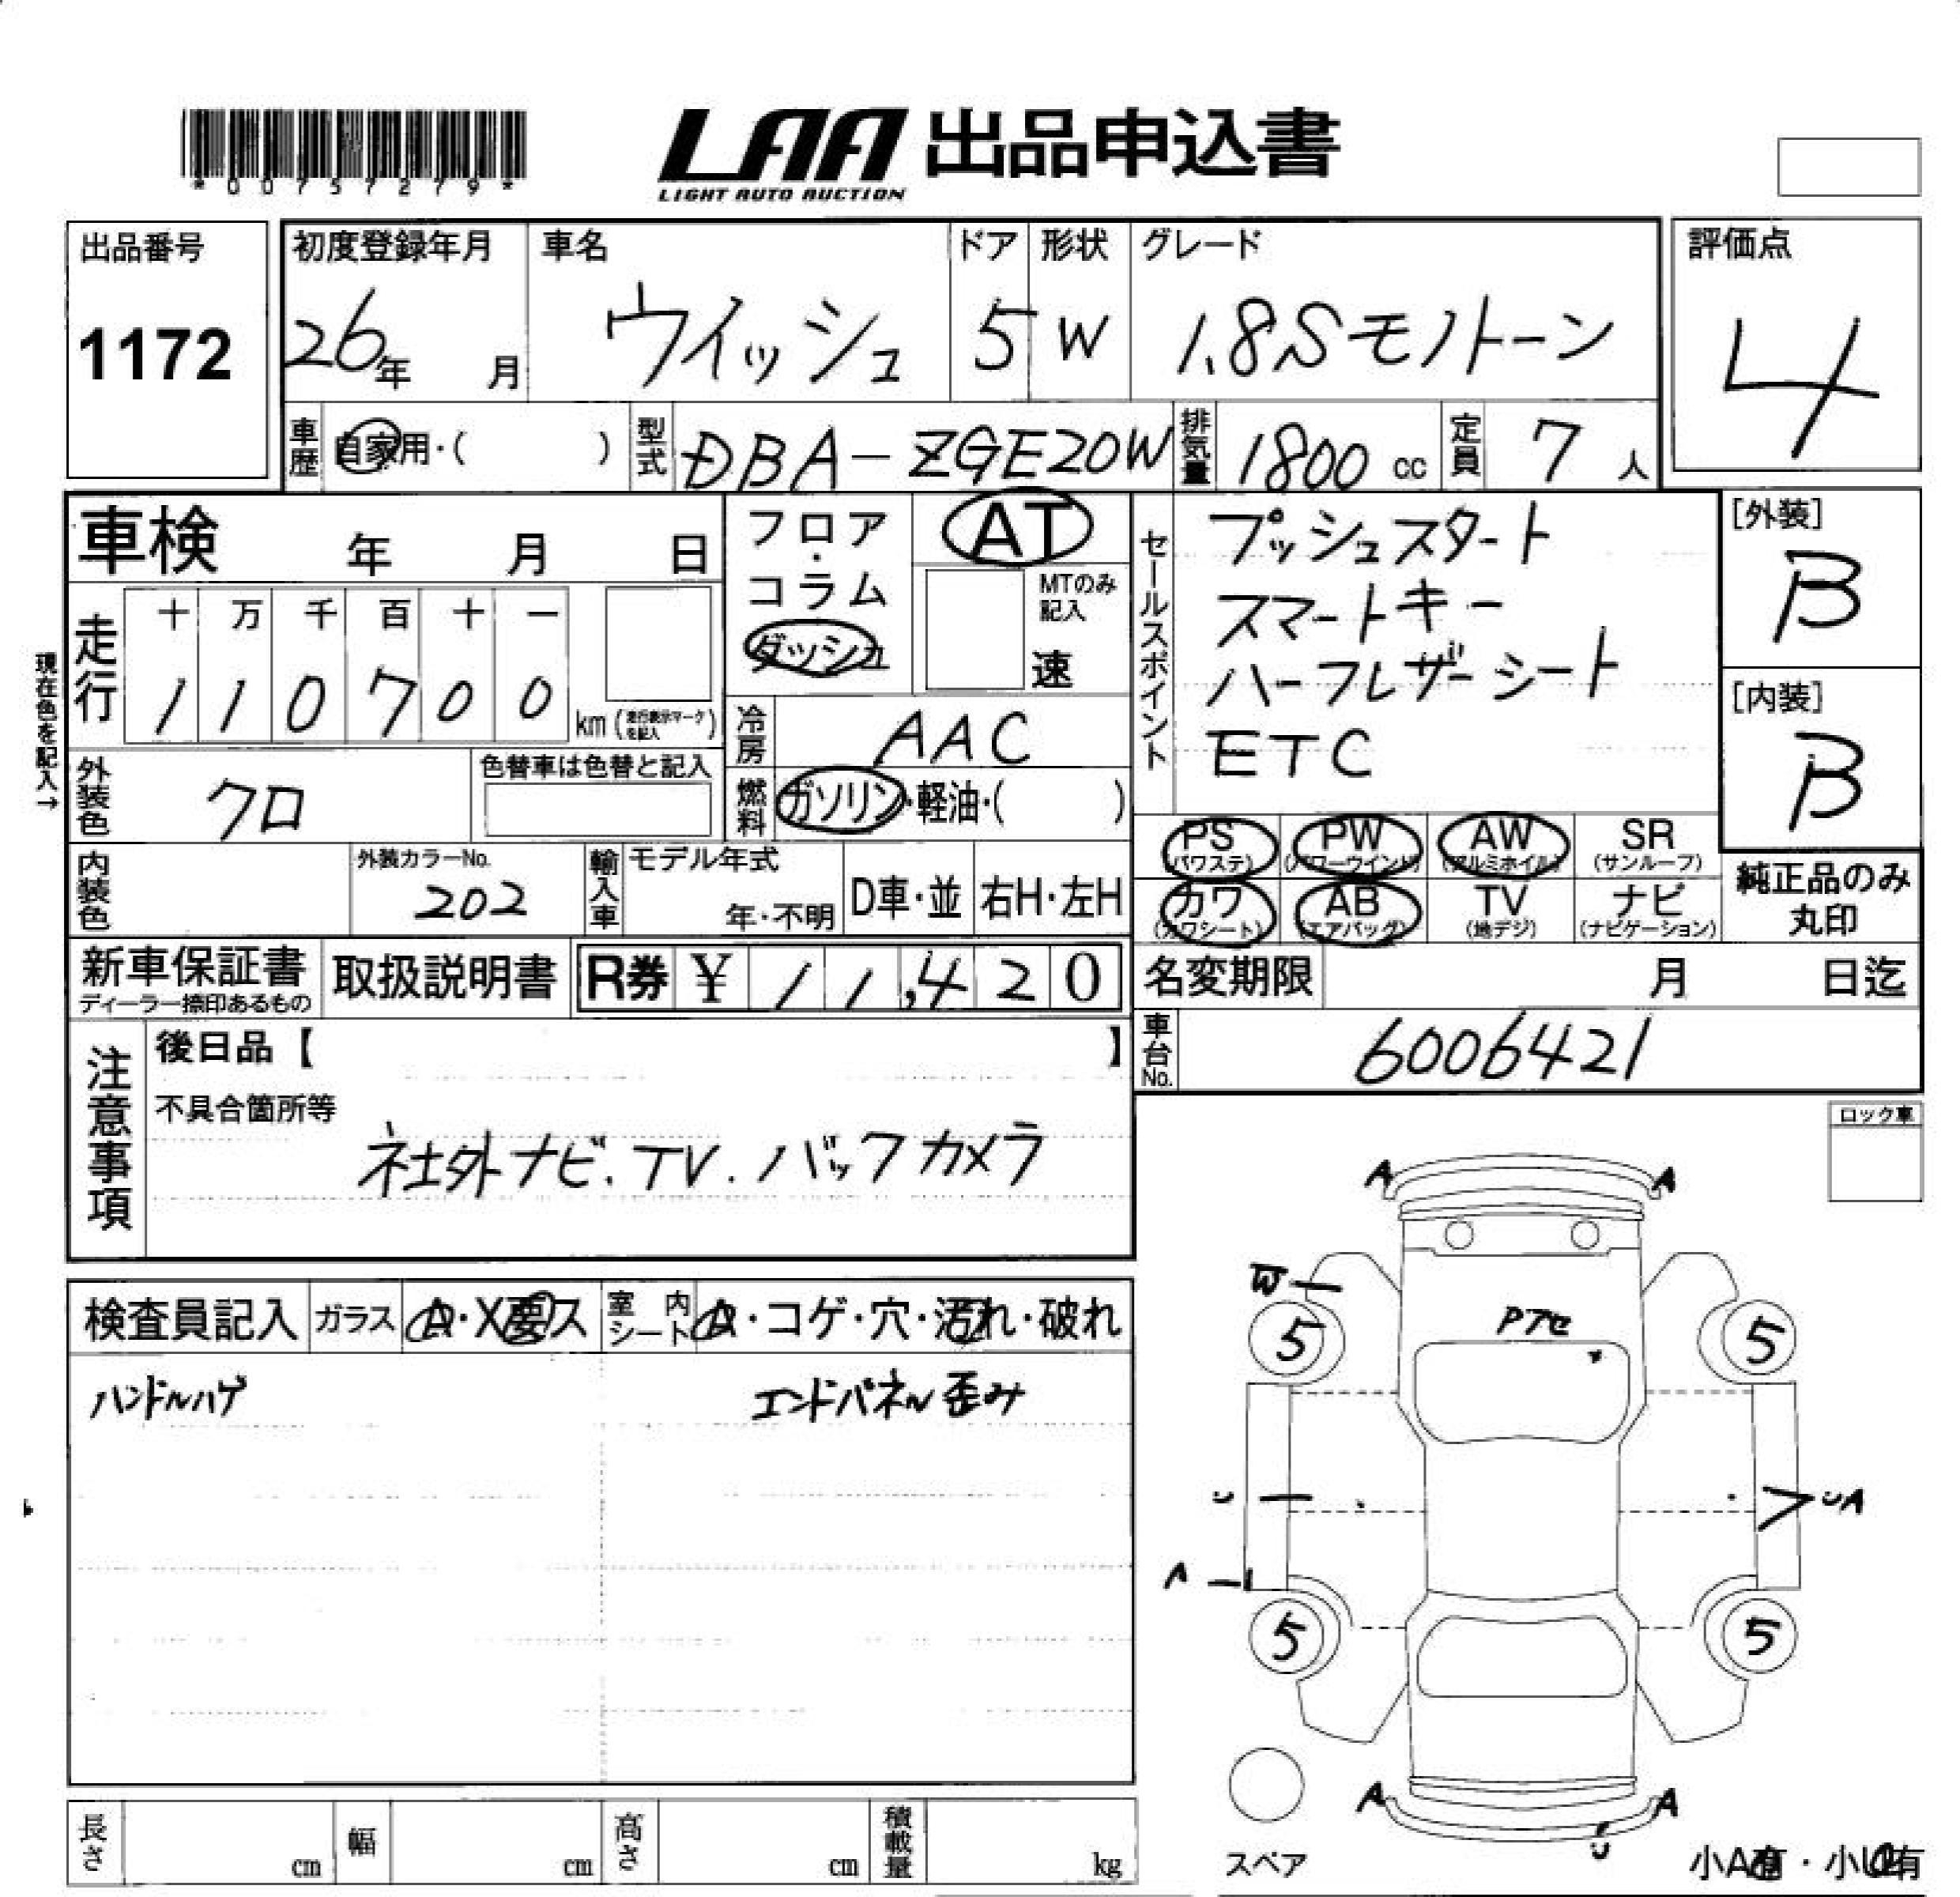 *00757279*
LAA 出品申込書
LIGHT AUTO AUCTION
出品番号
1172
初度登録年月
26年 月
車名
ウイッシュ
ドア
5
形状
W
グレード
1.8Sモノトーン
評価点
4
車歴 自家用・( )
型式 DBA-ZGE20W
排気量 1800 cc
定員 7 人
車検 年 月 日
フロア・コラム
ダッシュ
AT
MTのみ記入
速
セールスポイント
プッシュスタート
スマートキー
ハーフレザーシート
ETC
[外装]
B
[内装]
B
現在色を記入→
走行
十 万 千 百 十 一
1 1 0 7 0 0
km (走行表示マークを記入)
冷房 AAC
外装色 クロ
色替車は色替と記入
燃料 ガソリン・軽油・( )
PS (パワステ)
PW (パワーウインド)
AW (アルミホイル)
SR (サンルーフ)
カワ (カワシート)
AB (エアバッグ)
TV (地デジ)
ナビ (ナビゲーション)
純正品のみ丸印
内装色
外装カラーNo.
202
輸入車
モデル年式
年・不明
D車・並
右H・左H
新車保証書
ディーラー捺印あるもの
取扱説明書
R券 ¥ 11,420
名変期限 月 日迄
車台No. 6006421
注意事項
後日品【 】
不具合箇所等
社外ナビ.TV.バックカメラ
ロック車
検査員記入
ガラス A・X要ス
室内シート A・コゲ・穴・汚れ・破れ
ハンドルハゲ
エンドパネル歪み
A A
W
Pアセ
5 5
U UA
A
5 5
A A
U
スペア
小A有・小U有
長さ cm
幅 cm
高さ cm
積載量 kg